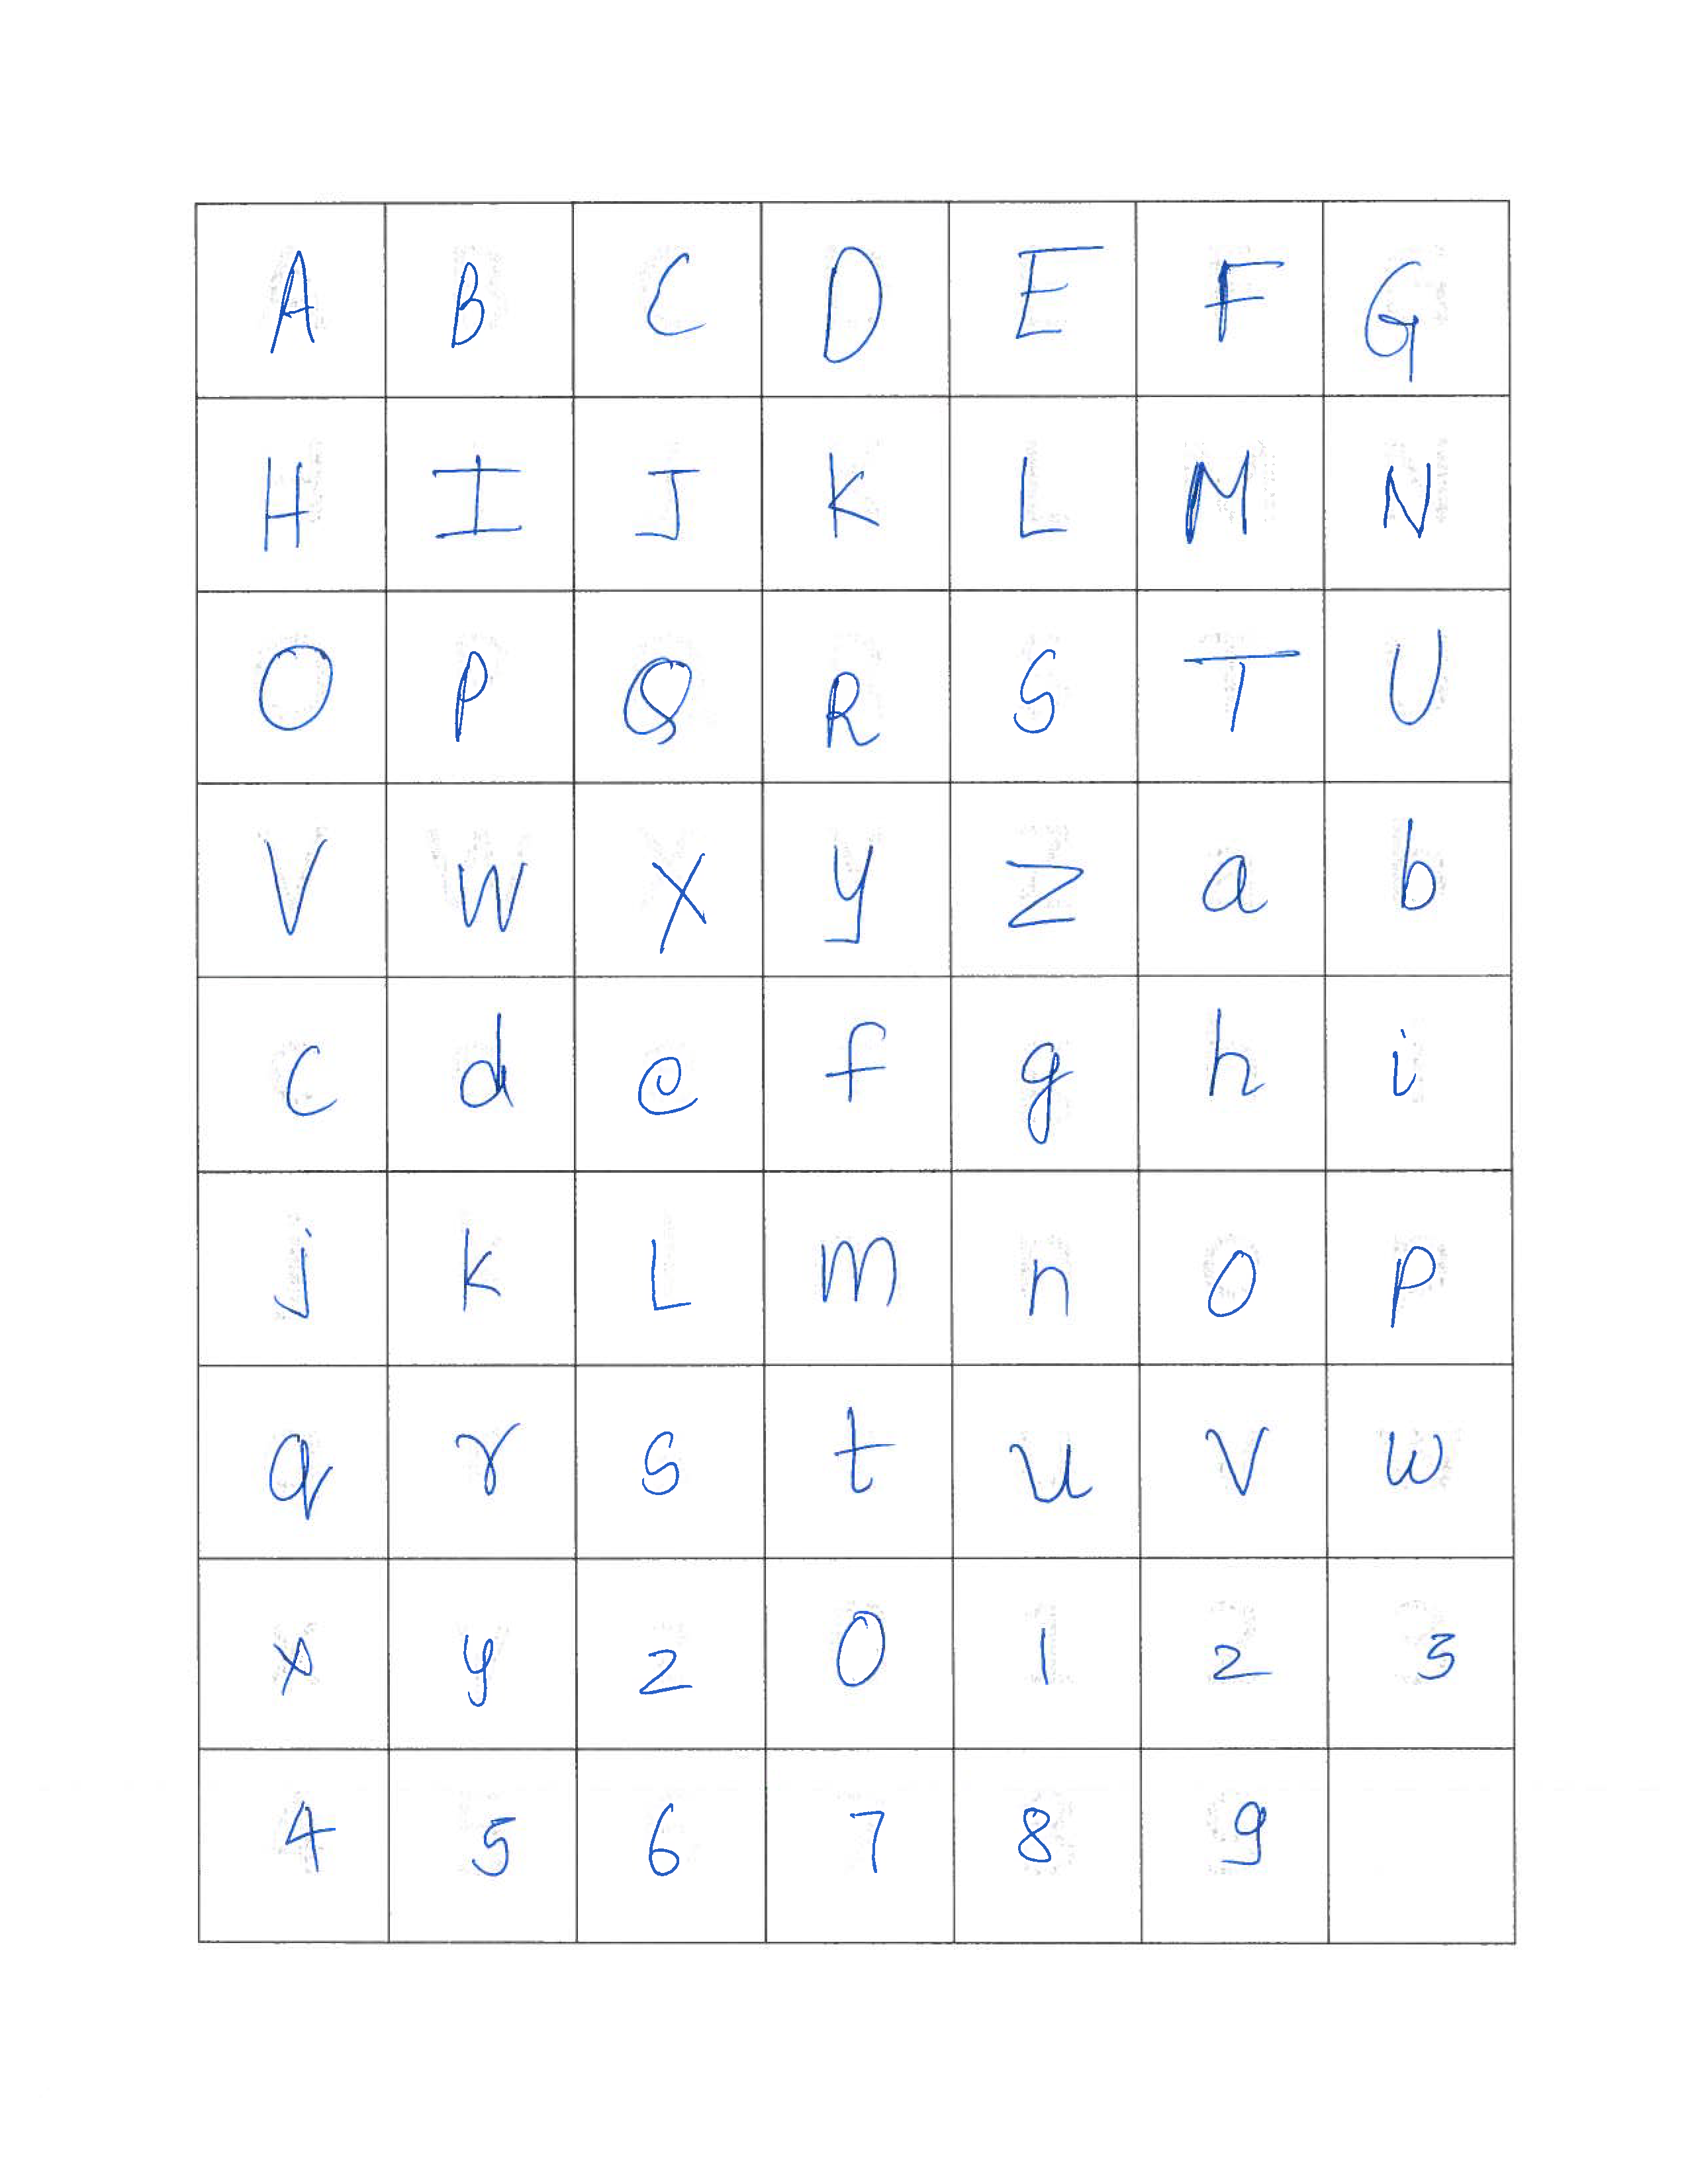 A B C D E F G
H I J K L M N
O P Q R S T U
V W X y Z a b
c d e f g h i
j k L m n o p
q r s t u v w
x y z 0 1 2 3
4 5 6 7 8 9